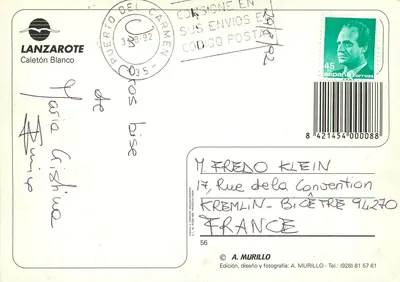 LANZAROTE
Caletón Blanco
PUERTO DEL CARMEN
35
CONSIGNE EN
SUS ENVIOS EL
CODIGO POSTAL
29/8/92
45
españa
8 421454 000088
bise
de
Maria Cristina
M. FREDO KLEIN
17, Rue de la Convention
KREMLIN - BICÊTRE 94270
FRANCE
56
© A. MURILLO
Edición, diseño y fotografía: A. MURILLO - Tel.: (928) 81 57 61